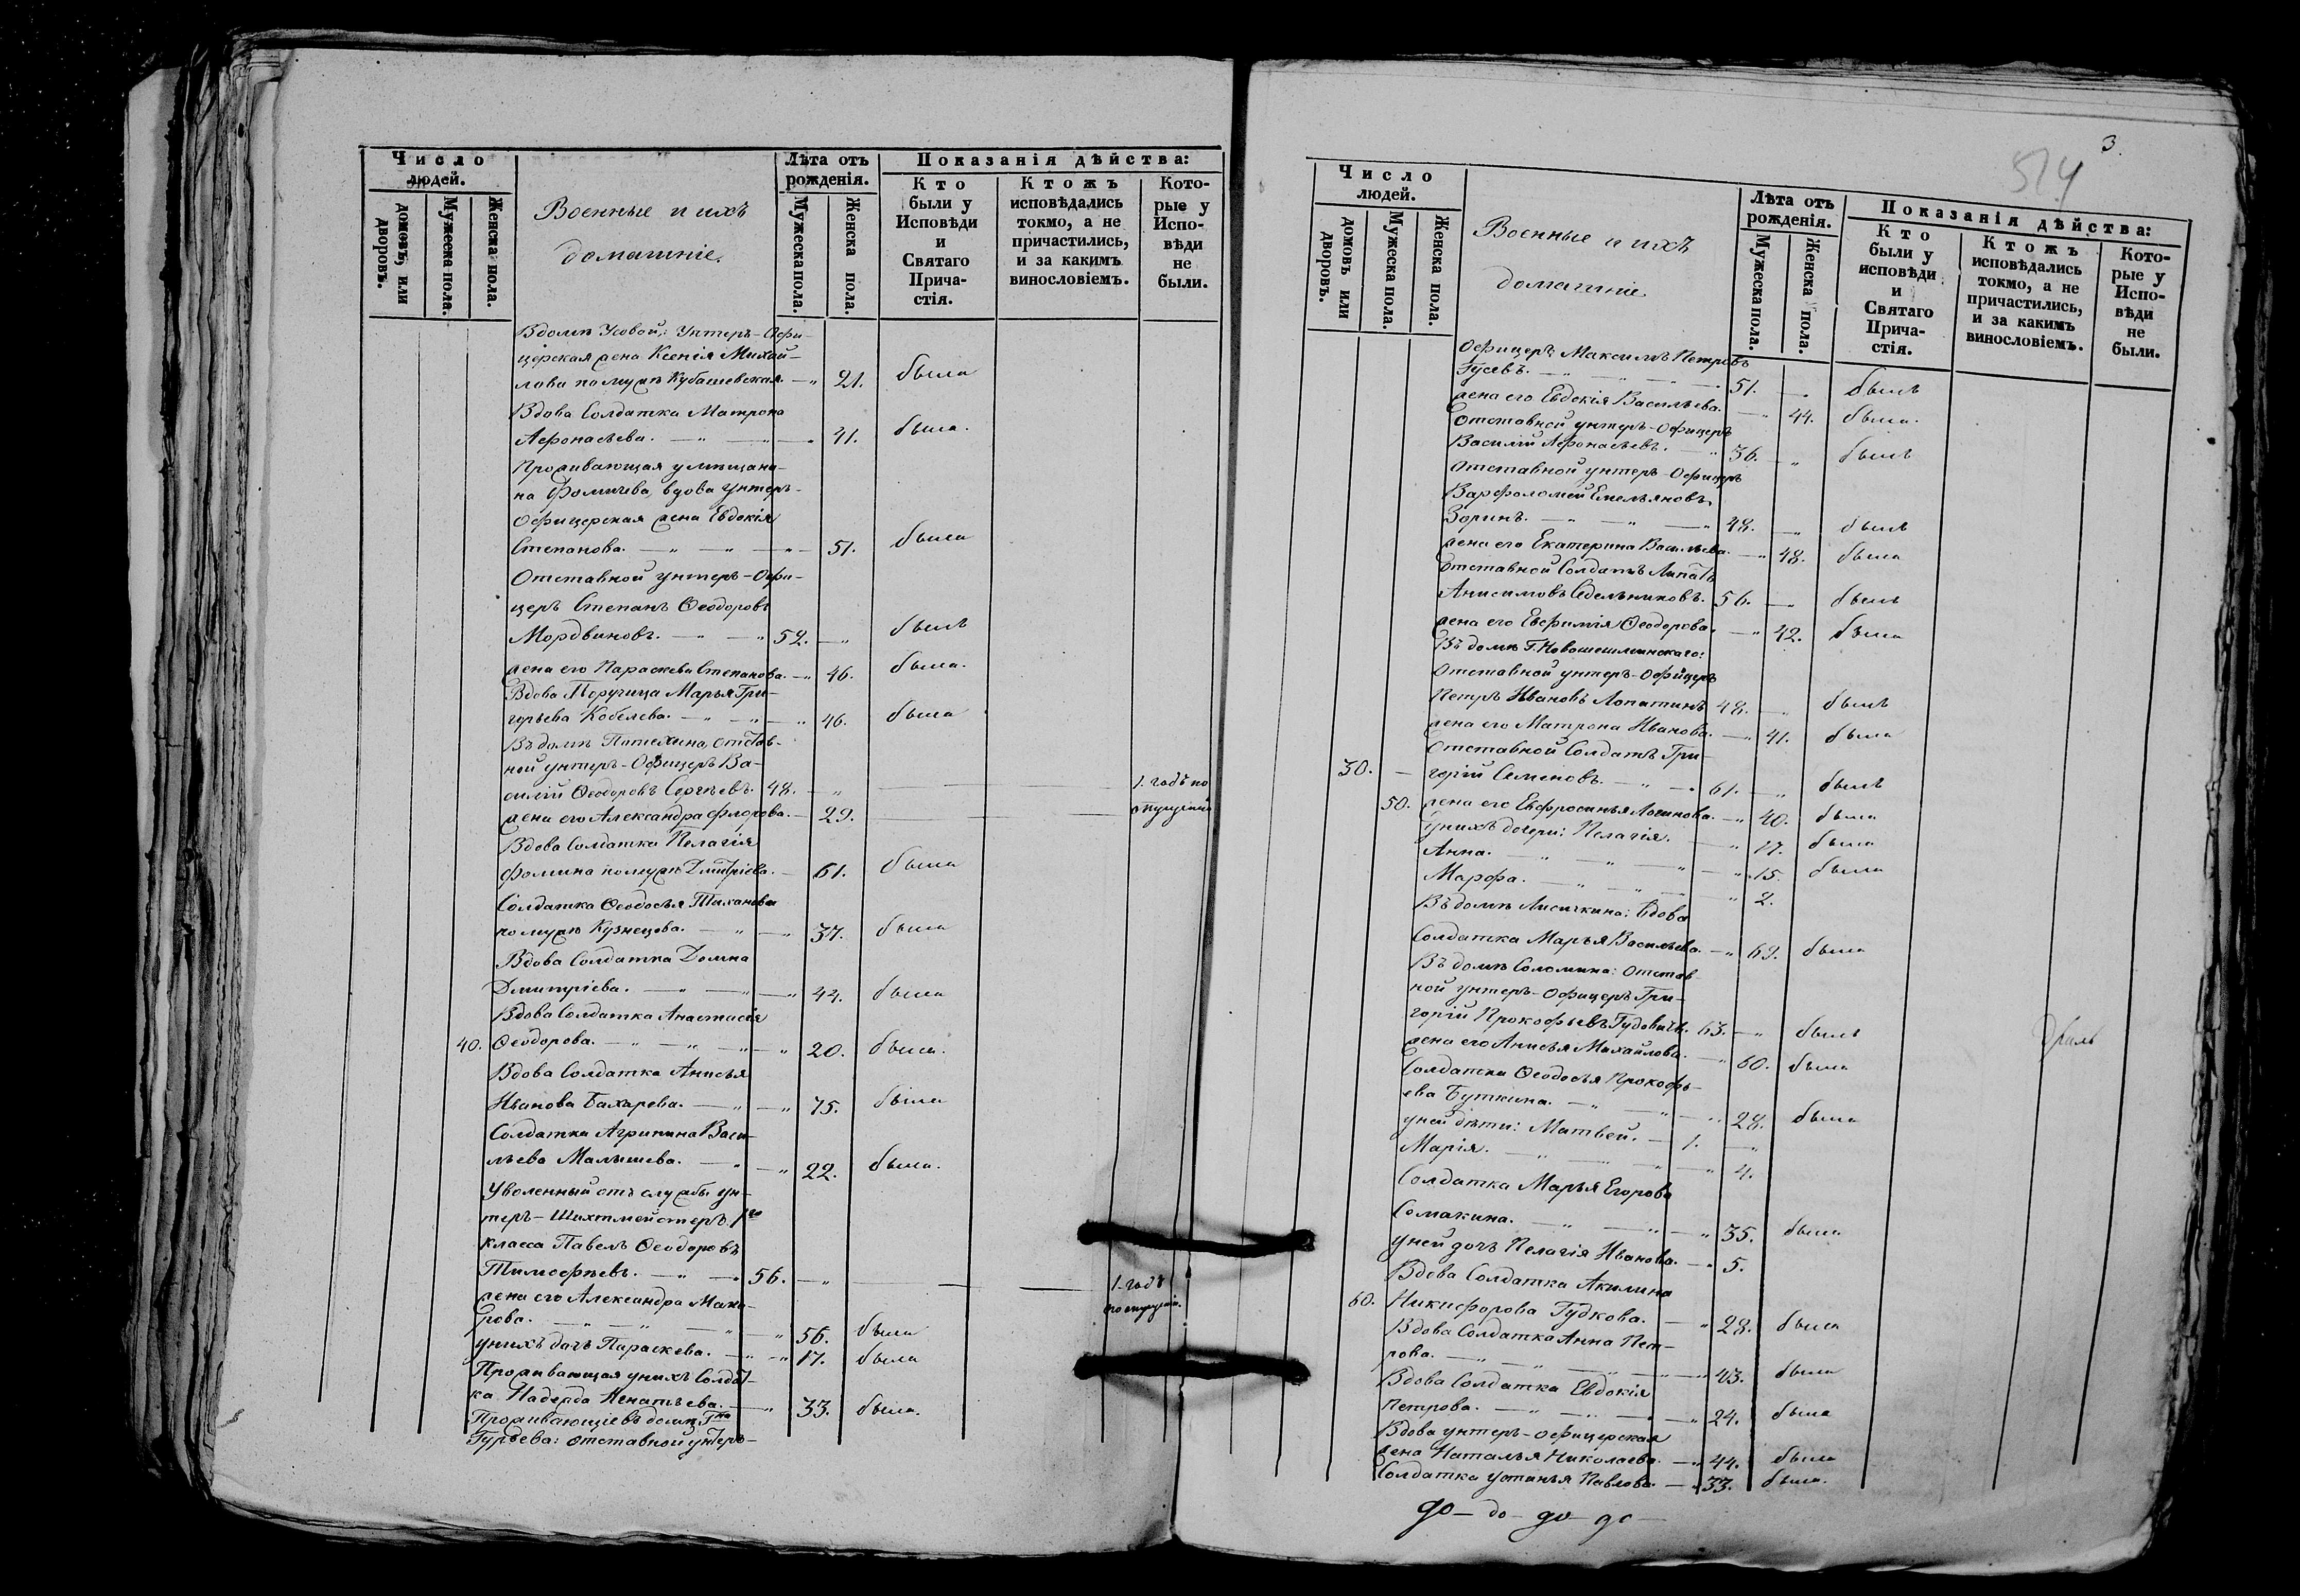 Число людей.
домовъ, или дворовъ.
Мужеска пола.
Женска пола.
Военные и ихъ
домашніе.
Лѣта отъ рожденія.
Мужеска пола
Женска пола.
Показанія дѣйства:
Кто были у Исповѣди и Святаго Прича-стія.
Ктожъ исповѣдались токмо, а не причастились, и за какимъ винословіемъ.
Кото-рые у Испо-вѣди не были.
Вдомѣ Усовой: Унтеръ-Офи-
церская жена Ксенія Михай-
лова по мужѣ Кубашевская. — „ 21. была
Вдова Солдатка Матрона
Афонасьева. — „ — „ — 41. была.
Проживающая у мѣщани-
на Фомичева, вдова Унтеръ-
Офицерская жена Евдокія
Степанова. — „ — „ — „ — 51. была
Отставной Унтеръ-Офи-
церъ Степанъ Ѳеодоровъ
Мордвиновъ. — „ — „ 52. — „ былъ
жена его Параскева Степанова. — „ 46. была.
Вдова Поручица Марья Гри-
горьева Кобелева. — „ — „ — „ 46. была
Въ домѣ Потехина, отстав-
ной унтеръ-Офицеръ Ва-
силій Ѳеодоровъ Сергѣевъ. 48. — „ — — 1. годъ по
жена его Александра Флорова. — 29. — — опущенію
Вдова Солдатка Пелагія
Фомина по мужѣ Дмитріева. — 61. была
Солдатка Ѳеодосья Тиханова
по мужѣ Кузнецова. — „ — „ 37. была
Вдова Солдатка Домна
Дмитріева. — „ — „ — „ 44. была
Вдова Солдатка Анастасія
40. Ѳеодорова. — „ — „ — „ — „ 20. была.
Вдова Солдатка Анисья
Иванова Бахарева. — „ — „ 75. была
Солдатка Агрипина Васи-
льева Малышева. — „ — „ 22. была.
Уволенный отъ службы ун-
теръ-Шихтмейстеръ 1го
класса Павелъ Ѳеодоровъ
Тимофѣевъ. — „ — „ 56. — „ — — — 1. годъ
жена его Александра Мака-
рова. — „ — „ — „ — „ 56. была
у нихъ дочь Параскева. — „ — „ 17. была
Проживающая у нихъ Солдат-
ка Надежда Игнатьева. — „ 33. была.
Проживающіе въ домѣ Гна
Гурьева: отставной унтеръ-
3.
524
Число людей.
домовъ или дворовъ.
Мужеска пола.
Женска пола.
Военные и ихъ
домашніе
Лѣта отъ рожденія.
Мужеска пола.
Женска пола.
Показанія дѣйства:
Кто были у исповѣди и Святаго Прича-стія.
Ктожъ исповѣдались токмо, а не причастились, и за какимъ винословіемъ.
Кото-рые у Испо-вѣди не были.
Офицеръ Максимъ Петровъ
Гусевъ. — „ — „ — 51. — „ былъ
жена его Евдокія Васильева. — „ 44. была.
Отставной унтеръ-Офицеръ
Василій Афонасьевъ. — „ 36. — „ былъ
Отставной унтеръ-Офицеръ
Варфоломей Емельяновъ
Зоринъ. — „ — „ — „ 48. — „ былъ
жена его Екатерина Васильева. — „ 48. была
Отставной Солдатъ Липатъ
Анисимовъ Седельниковъ. 56. — „ былъ
жена его Евфимія Ѳеодорова. — „ 42. была
Въ домѣ Г. Новошешминскаго:
Отставной унтеръ-Офицеръ
Петръ Ивановъ Лопатинъ 48. — „ былъ
жена его Матрона Иванова. — „ 41. была
Отставной Солдатъ Гри-
30. — горій Семеновъ. — „ — „ 61. — „ былъ
50. жена его Евфросинья Логинова. — „ 40. была
у нихъ дочери: Пелагія. — „ 17. была
Анна. — „ — „ — „ — „ 15. была
Марфа. — „ — „ — „ 2.
Въ домѣ Лисичкина: вдова
Солдатка Марья Васильева. — „ 69. была
Въ домѣ Соломина: Отстав-
ной унтеръ-Офицеръ Гри-
горій Прокофьевъ Гудовичъ. 63. — „ былъ
жена его Анисья Михайлова. — „ 60. была
Солдатка Ѳеодосья Прокофь-
ева Буткина. — „ — „ — „ 28. была
у ней дѣти: Матвей. — 1. — „
Марія. — „ — „ — „ — „ 4.
Солдатка Марья Егорова
Сомакина. — „ — „ — „ 35. была
у ней дочь Пелагія Иванова. — „ 5.
Вдова Солдатка Акилина
60. Никифорова Гудкова. — „ 28. была
Вдова Солдатка Анна Пет-
рова. — „ — „ — „ — „ 43. была
Вдова Солдатка Евдокія
Петрова. — „ — „ — „ — „ 24. была
Вдова унтеръ-офицерская
жена Наталья Николаева. — „ 44. была
Солдатка Устинья Павлова. — „ 33. была.
до — до — до — до —